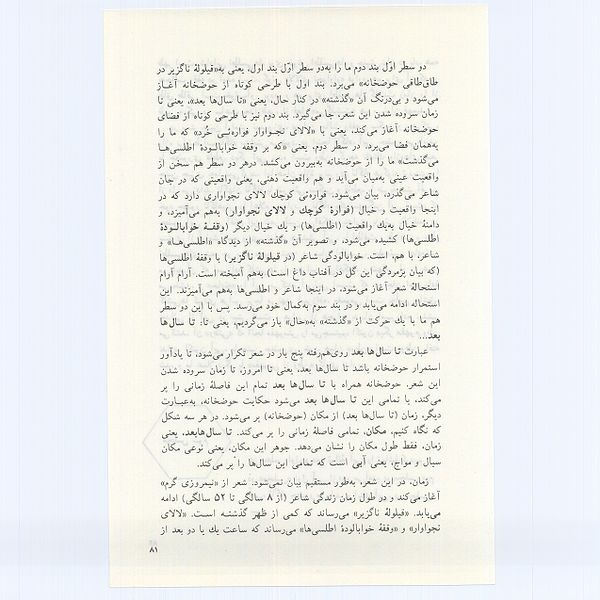 دو سطر اوّل بند دوم ما را به‌دو سطر اوّل بند اول، یعنی به«قیلولهٔ ناگزیر در
طاق‌طاقی حوضخانه» می‌برد. بند اول با طرحی کوتاه از حوضخانه آغاز
می‌شود و بی‌درنگ آن «گذشته» در کنار حال، یعنی «تا سال‌ها بعد»، یعنی تا
زمان سروده شدن این شعر، جا می‌گیرد. بند دوم نیز با طرحی کوتاه از فضای
حوضخانه آغاز می‌کند، یعنی با «لالای نجواوار فواره‌ئی خُرد» که ما را
به‌همان فضا می‌برد. در سطر دوم، یعنی «که بر وقفه خوابالودهٔ اطلسی‌ها
می‌گذشت» ما را از حوضخانه به‌بیرون می‌کشد. درهر دو سطر هم سخن از
واقعیت عینی به‌میان می‌آید و هم واقعیت ذهنی، یعنی واقعیتی که در جان
شاعر می‌گذرد، بیان می‌شود. فواره‌ئی کوچك لالای نجواواری دارد که در
اینجا واقعیت و خیال (فوارهٔ کوچك و لالای نجواوار) به‌هم می‌آمیزند، و
دامنهٔ خیال به‌یك واقعیت (اطلسی‌ها) و یك خیال دیگر (وقفهٔ خوابالودهٔ
اطلسی‌ها) کشیده می‌شود، و تصویر آن «گذشته» از دیدگاه «اطلسی‌ها» و
شاعر، با هم، است. خوابالودگی شاعر (در قیلولهٔ ناگزیر) با وقفهٔ اطلسی‌ها
(که بیان پژمردگی این گل در آفتاب داغ است) به‌هم آمیخته است. آرام آرام
استحالهٔ شعر آغاز می‌شود، در اینجا شاعر و اطلسی‌ها به‌هم می‌آمیزند. این
استحاله ادامه می‌یابد و در بند سوم به‌کمال خود می‌رسد. پس با این دو سطر
هم ما با یك حرکت از «گذشته» به«حال» باز می‌گردیم، یعنی تا: تا سال‌ها
بعد...
عبارت تا سال‌ها بعد روی‌هم‌رفته پنج بار در شعر تکرار می‌شود، تا یادآور
استمرار حوضخانه باشد تا سال‌ها بعد، یعنی تا امروز، تا زمان سروده شدن
این شعر. حوضخانه همراه با تا سال‌ها بعد تمام این فاصلهٔ زمانی را پر
می‌کند، با تمامی این تا سال‌ها بعد می‌شود حکایت حوضخانه، به‌عبارت
دیگر، زمان (تا سال‌ها بعد) از مکان (حوضخانه) پر می‌شود. در هر سه شکل
که نگاه کنیم، مکان، تمامی فاصلهٔ زمانی را پر می‌کند. تا سال‌هابعد، یعنی
زمان، فقط طول مکان را نشان می‌دهد. جوهر این مکان، یعنی نوعی مکان
سیال و مواج، یعنی آبی است که تمامی این سال‌ها را پر می‌کند.
زمان، در این شعر، به‌طور مستقیم بیان نمی‌شود. شعر از «نیمروزی گرم»
آغاز می‌کند و در طول زمان زندگی شاعر (از ۸ سالگی تا ۵۲ سالگی) ادامه
می‌یابد. «قیلولهٔ ناگزیر» می‌رساند که کمی از ظهر گذشته است. «لالای
نجواوار» و «وقفهٔ خوابالودهٔ اطلسی‌ها» می‌رساند که ساعت یك یا دو بعد از
۸۱